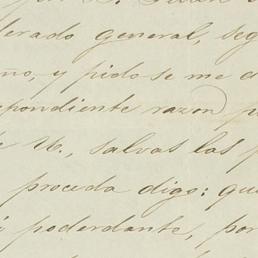 por D. Juan
derado general, seg
ño, y pido se me d
spondiente razon p
e V., salvas las p
proceda digo: que
i poderdante, por